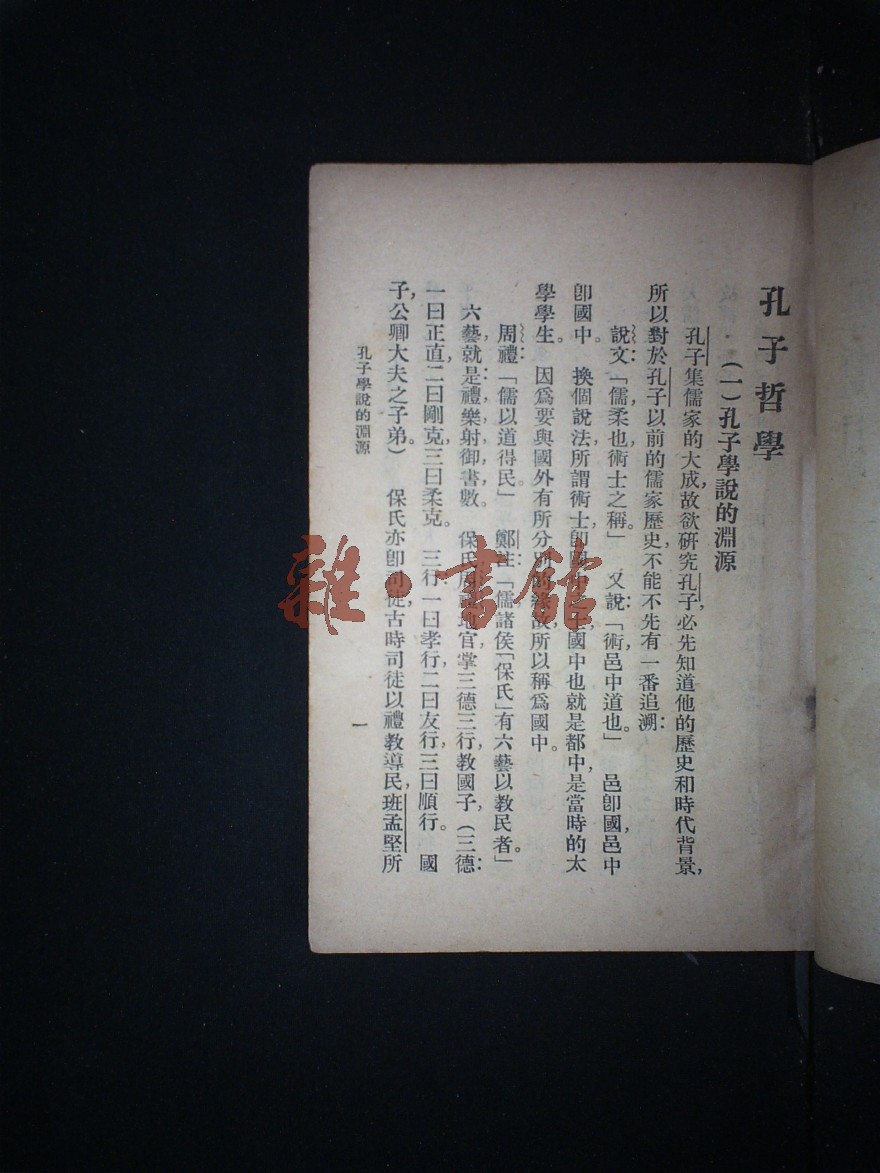 孔子哲學
(一)孔子學說的淵源
孔子集儒家的大成,故欲研究孔子,必先知道他的歷史和時代背景,
所以對於孔子以前的儒家歷史,不能不先有一番追溯:
說文:「儒柔也,術士之稱。」又說:「術,邑中道也。」邑卽國,邑中
卽國中。換個說法,所謂術士,卽國中也就是都中,是當時的太
學學生。因爲要與國外有所分別的緣故,所以稱爲國中。
周禮:「儒以道得民。」鄭注:「儒,諸侯「保氏」有六藝以敎民者。」
六藝,就是:禮,樂,射,御,書,數。保氏,周禮地官,掌三德三行,敎國子,(三德:
一曰正直,二曰剛克,三曰柔克。三行,一曰孝行,二曰友行,三曰順行。國
子,公卿大夫之子弟。)保氏亦卽司徒,古時司徒以禮敎導民,班孟堅所
孔子學說的淵源
一
雜·書館